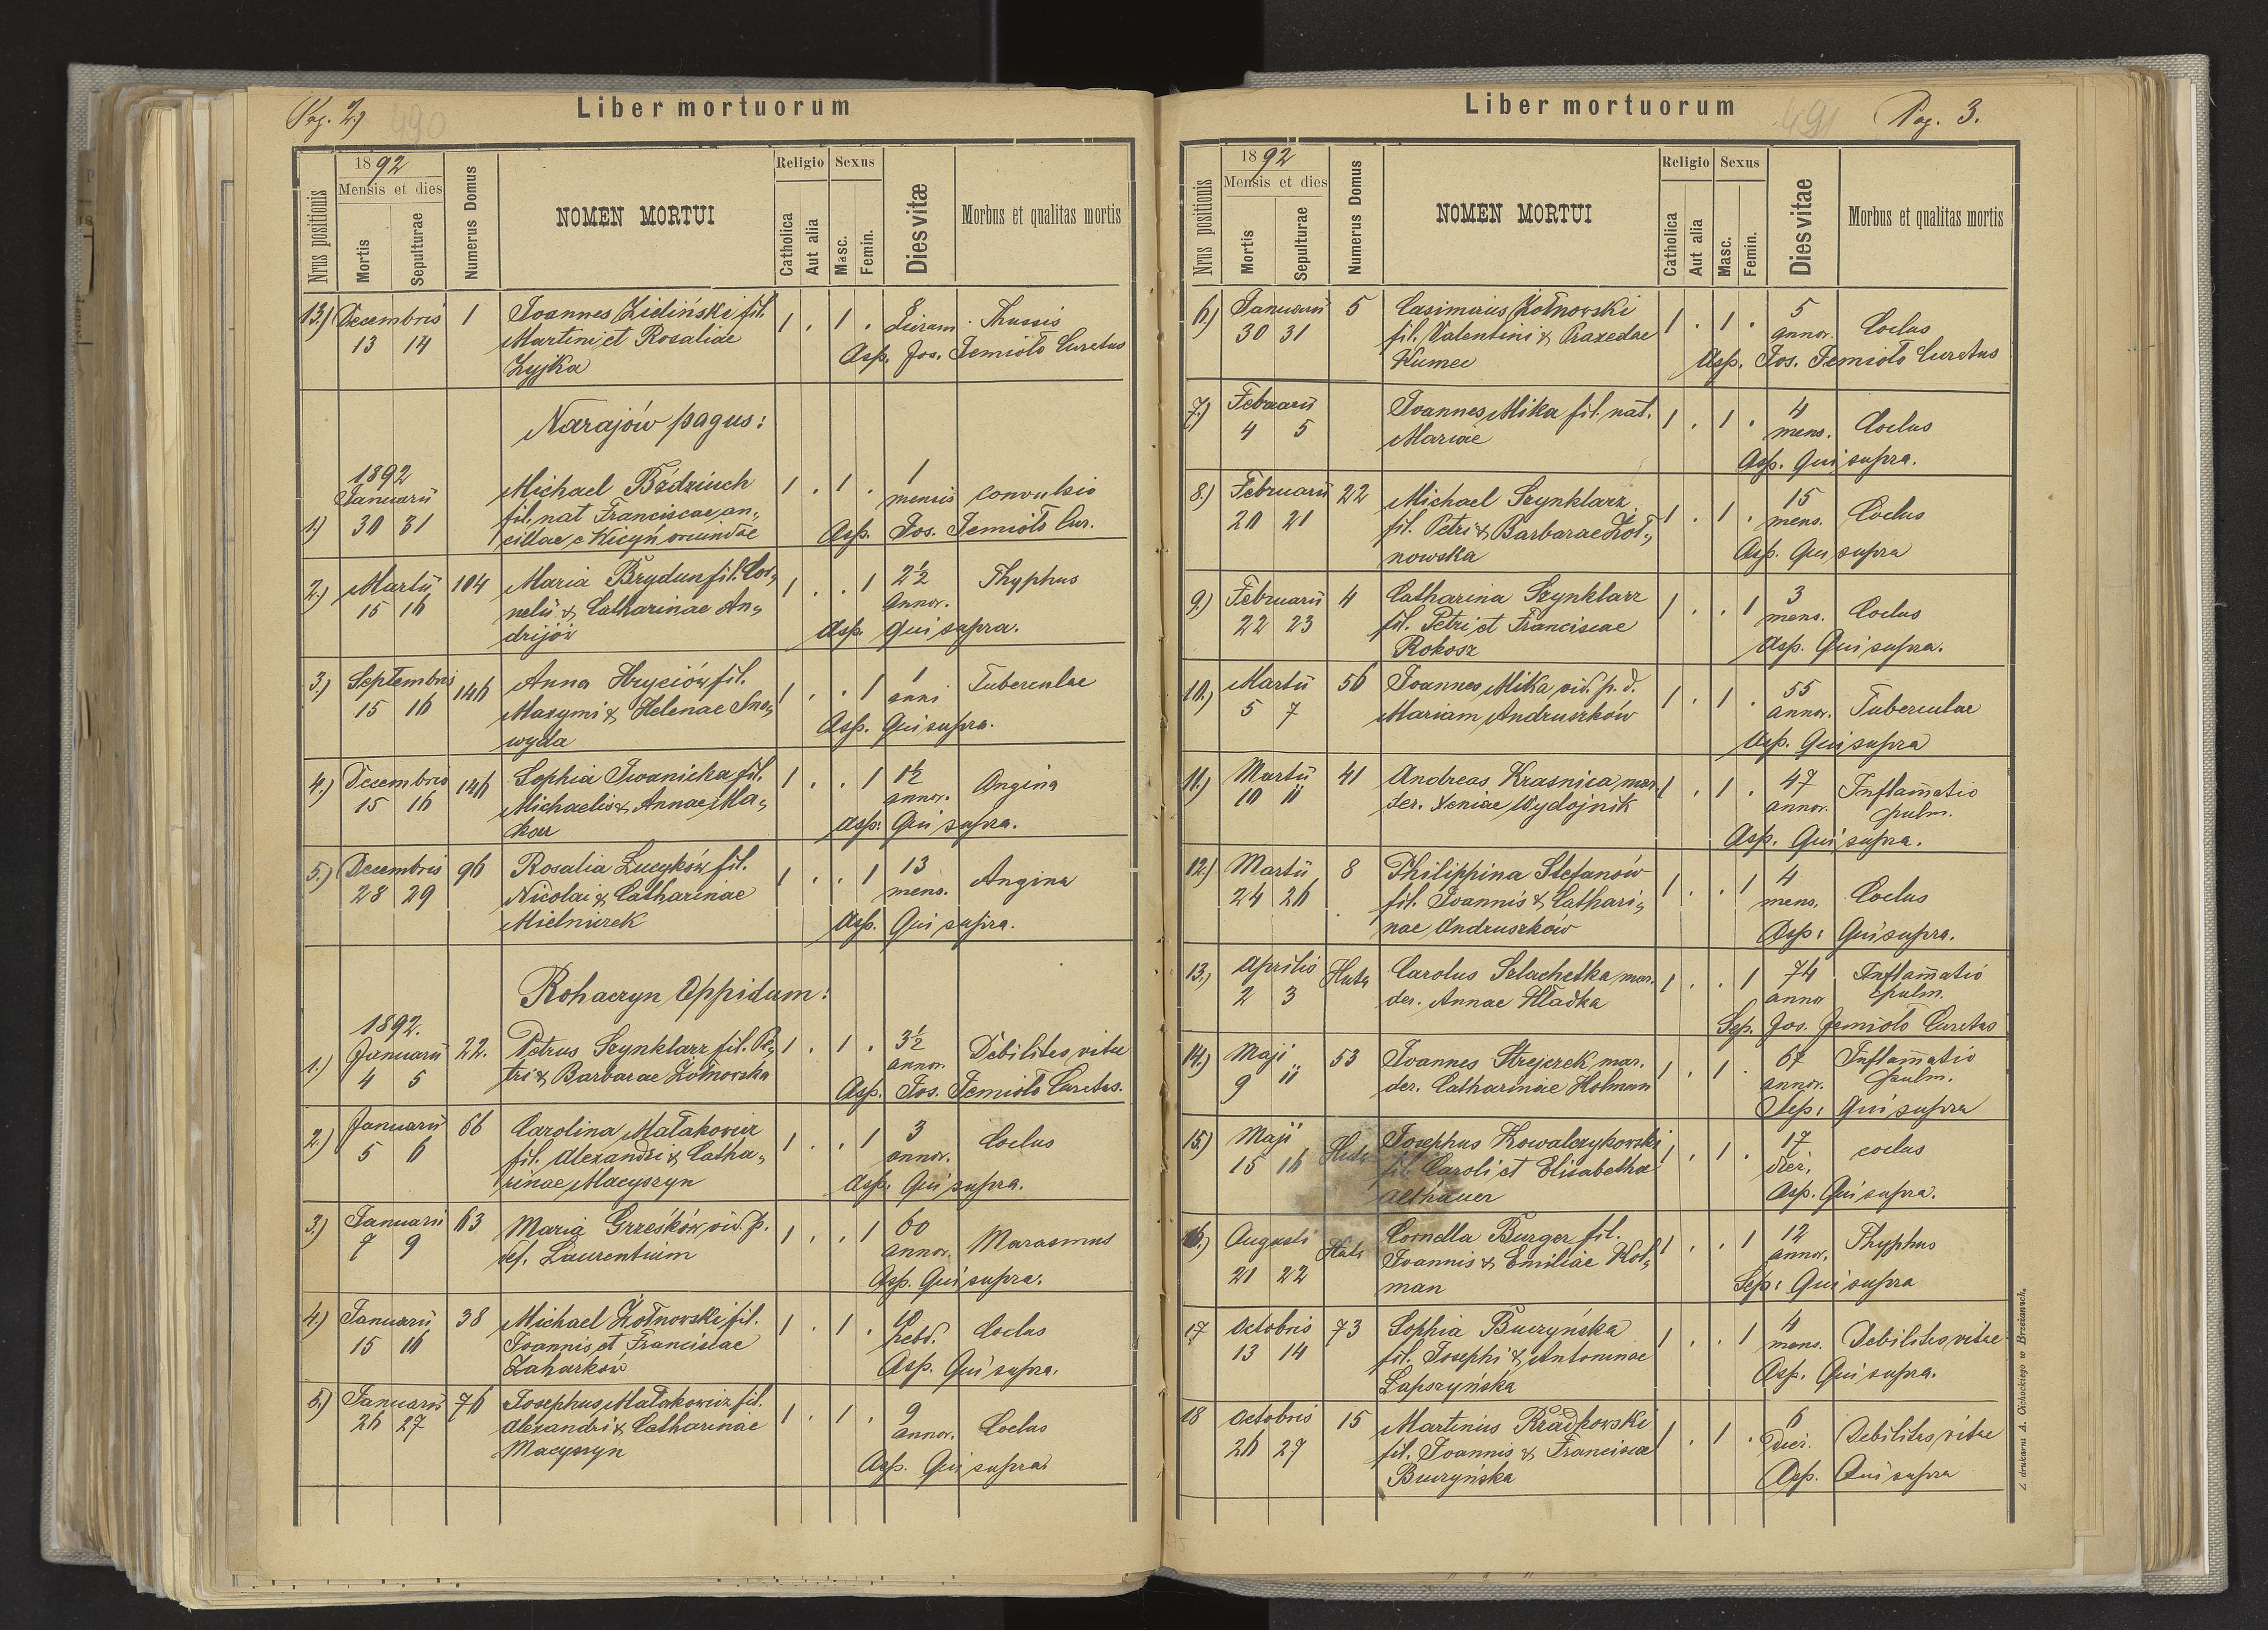 Pag. 2.) 490
Liber mortuorum
Nrus positionis
1892
Mensis et dies
Mortis
Sepulturae
Numerus Domus
NOMEN MORTUI
Religio
Catholica
Aut alia
Sexus
Masc.
Femin.
Dies vitæ
Morbus et qualitas mortis
13.) Decembris 1 Joannes Zieliński fil. 1 . 1 . Thussis
13 14 Martini et Rosaliae
Zyjka Asp. Jos. Jemioło Curatus
Narajów pagus:
1892
Januarii Michael Bździuch 1 . 1 . 1
1) 30 31 fil. nat Franciscae an„ mensis convulsio
cillae e Kicyń oriundae Asp. Jos. Jemioło Cur.
2.) Martii 104 Maria Brydun fil. Cor„ 1 . . 1 2½ Thyphus
15 16 nelii & Catharinae An„ annor.
drijów Asp. Qui supra.
3.) Septembris 146 Anna Hryciów fil. 1 . . 1 1 Tuberculae
15 16 Maxymi & Helenae Sno„ anni
wyda Asp. Qui supra.
4.) Decembris 146 Sophia Iwanicka fil. 1 . . 1 1½ Angina
15 16 Michaelis & Annae Ma„ annor.
kar Asp: Qui supra.
5.) Decembris 96 Rosalia Lucyków fil. 1 . . 1 13 Angina
28 29 Nicolai & Catharinae mens.
Mielniczek Asp. Qui supra.
Rohaczyn Oppidum:
1892.
1.) Januarii 22. Petrus Szynklarz fil. Pe„ 1 . 1 . 3½ Debilitas vitae
4 5 tri & Barbarae Żołnowska annor.
Asp. Jos. Jemioło Curatus.
2.) Januarii 66 Carolina Małakowicz 1 . . 1 3 Coclus
5 6 fil. Alexandri & Catha„ annor.
rinae Macyszyn Asp: Qui supra.
3.) Januarii 63 Maria Grześków vid. p. 1 . . 1 60 Marasmus
7 9 def. Laurentium annor.
Asp. Qui supra.
4.) Januarii 38 Michael Żołnowski fil. 1 . 1 . Coclus
15 16 Joannis et Franciscae hebd.
Zaharków Asp. Qui supra.
5.) Januarii 76 Josephus Małakowicz fil. 1 . 1 . 9 Coclus
26 27 Alexandri & Catharinae annor.
Macyszyn Asp. Qui supra.
Liber mortuorum
491 Pag. 3.
Nrus positionis
1892
Mensis et dies
Mortis
Sepulturae
Numerus Domus
NOMEN MORTUI
Religio
Catholica
Aut alia
Sexus
Masc.
Femin.
Dies vitae
Morbus et qualitas mortis
6.) Januarii 5 Casimirius Żołnowski 1 . 1 . 5 Coclus
30 31 fil. Valentini & Praxedae annor.
Kumec Asp. Jos. Jemioło Curatus
7.) Februarii Joannes Mika fil. nat. 1 . 1 . 4 Coclus
4 5 Mariae mens.
Asp. Qui supra.
8.) Februarii 22 Michael Szynklarz 1 . 1 . 15 Coclus
20 21 fil. Petri & Barbarae Żoł„ mens.
nowska Asp. Qui supra
9.) Februarii 4 Catharina Szynklarz 1 . . 1 3 Coclus
22 23 fil. Petri et Franciscae mens.
Rokosz Asp. Qui supra.
10.) Martii 56 Joannes Mika vid. p. d. 1 . 1 . 55 Tuberculae
5 7 Mariam Andruszków annor.
Asp. Qui supra
11.) Martii 41 Andreas Krasnica mar. 1 . 1 . 47 Inflamatio
10 11 der. Xeniae Wydojnik annor. pulm.
Asp. Qui supra.
12.) Martii 8 Philippina Stefanów 1 . . 1 4 Coclus
24 26 fil. Joannis & Cathari„ mens.
nae Andruszków Asp: Qui supra.
13.) Aprilis Huta Carolus Szlachetka mar. 1 . . 1 74 Inflamatio
2 3 der. Annae Hładka anno pulm.
Sep. Jos. Jemioło Curatus
14.) Maji 53 Joannes Strejczek mar. 1 . 1 . 67 Inflamatio
9 11 der. Catharinae Holman annor. pulm.
Sep: Qui supra
15.) Maji Huta Josephus Kowalczykowski 1 . 1 . 17 coclus
15 16 fil. Caroli et Elisabethae dier.
Althauer Asp. Qui supra.
16.) Augusti Huta Cornella Burger fil. 1 . . 1 12 Thyphus
21 22 Joannis & Emiliae Hol„ annor.
man Sep: Qui supra
17 Octobris 73 Sophia Buczyńska 1 . . 1 4 Debilitas vitae
13 14 fil. Josephi & Antoninae mens.
Łapszyńska Asp. Qui supra.
18 Octobris 15 Martinius Rządkowski 1 . 1 . 6 Debilitas vitae
26 27 fil. Joannis & Franciscae Dier.
Buczyńska Asp. Qui supra
Z drukarni A. Cichockiego w Brzeżanach.